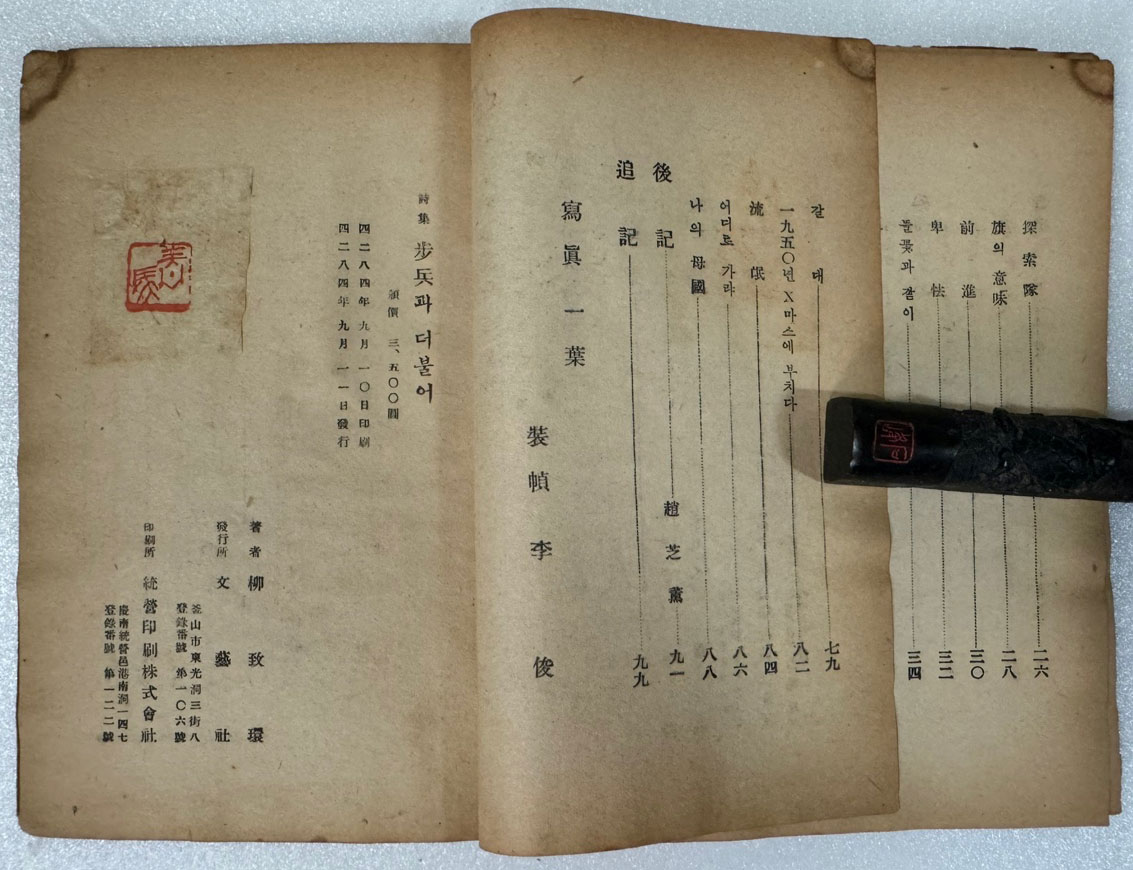 探索隊 二六
旗의 意味 二八
前進 三〇
卑怯 三二
불꽃과 잠이 三四
갈대 七九
一九五〇년 X마스에 부치다 八二
流氓 八四
어디로 가라 八六
나의 母國 八八
後記 趙芝薰 九一
追記 九九
寫眞一葉
裝幀 李俊
詩集 步兵과 더불어
頒價 三、五〇〇圓
四二八四年 九月 一〇日 印刷
四二八四年 九月 一一日 發行
著者 柳致環
發行所 文藝社
釜山市東光洞三街八
登錄番號 第一〇六號
印刷所 統營印刷株式會社
慶南統營邑港南洞一四七
登錄番號 第一二二號